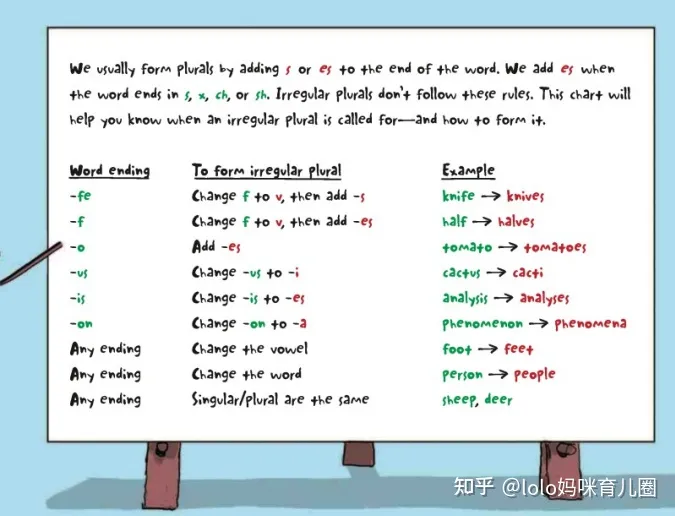 We usually form plurals by adding s or es to the end of the word. We add es when
the word ends in s, x, ch, or sh. Irregular plurals don't follow these rules. This chart will
help you know when an irregular plural is called for—and how to form it.
Word ending To form irregular plural Example
-fe Change f to v, then add -s knife → knives
-f Change f to v, then add -es half → halves
-o Add -es tomato → tomatoes
-us Change -us to -i cactus → cacti
-is Change -is to -es analysis → analyses
-on Change -on to -a phenomenon → phenomena
Any ending Change the vowel foot → feet
Any ending Change the word person → people
Any ending Singular/plural are the same sheep, deer
知乎 @lolo妈咪育儿圈